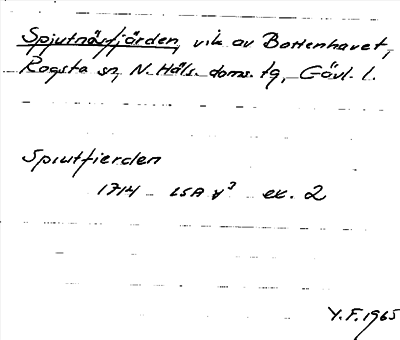 Spjutnäsfjärden, vik av Bottenhavet,
Rogsta sn, N. Häls. doms. tg, Gävl. l.
Spiutfierden
1714 LSA ek. 2
Y.F. 1965